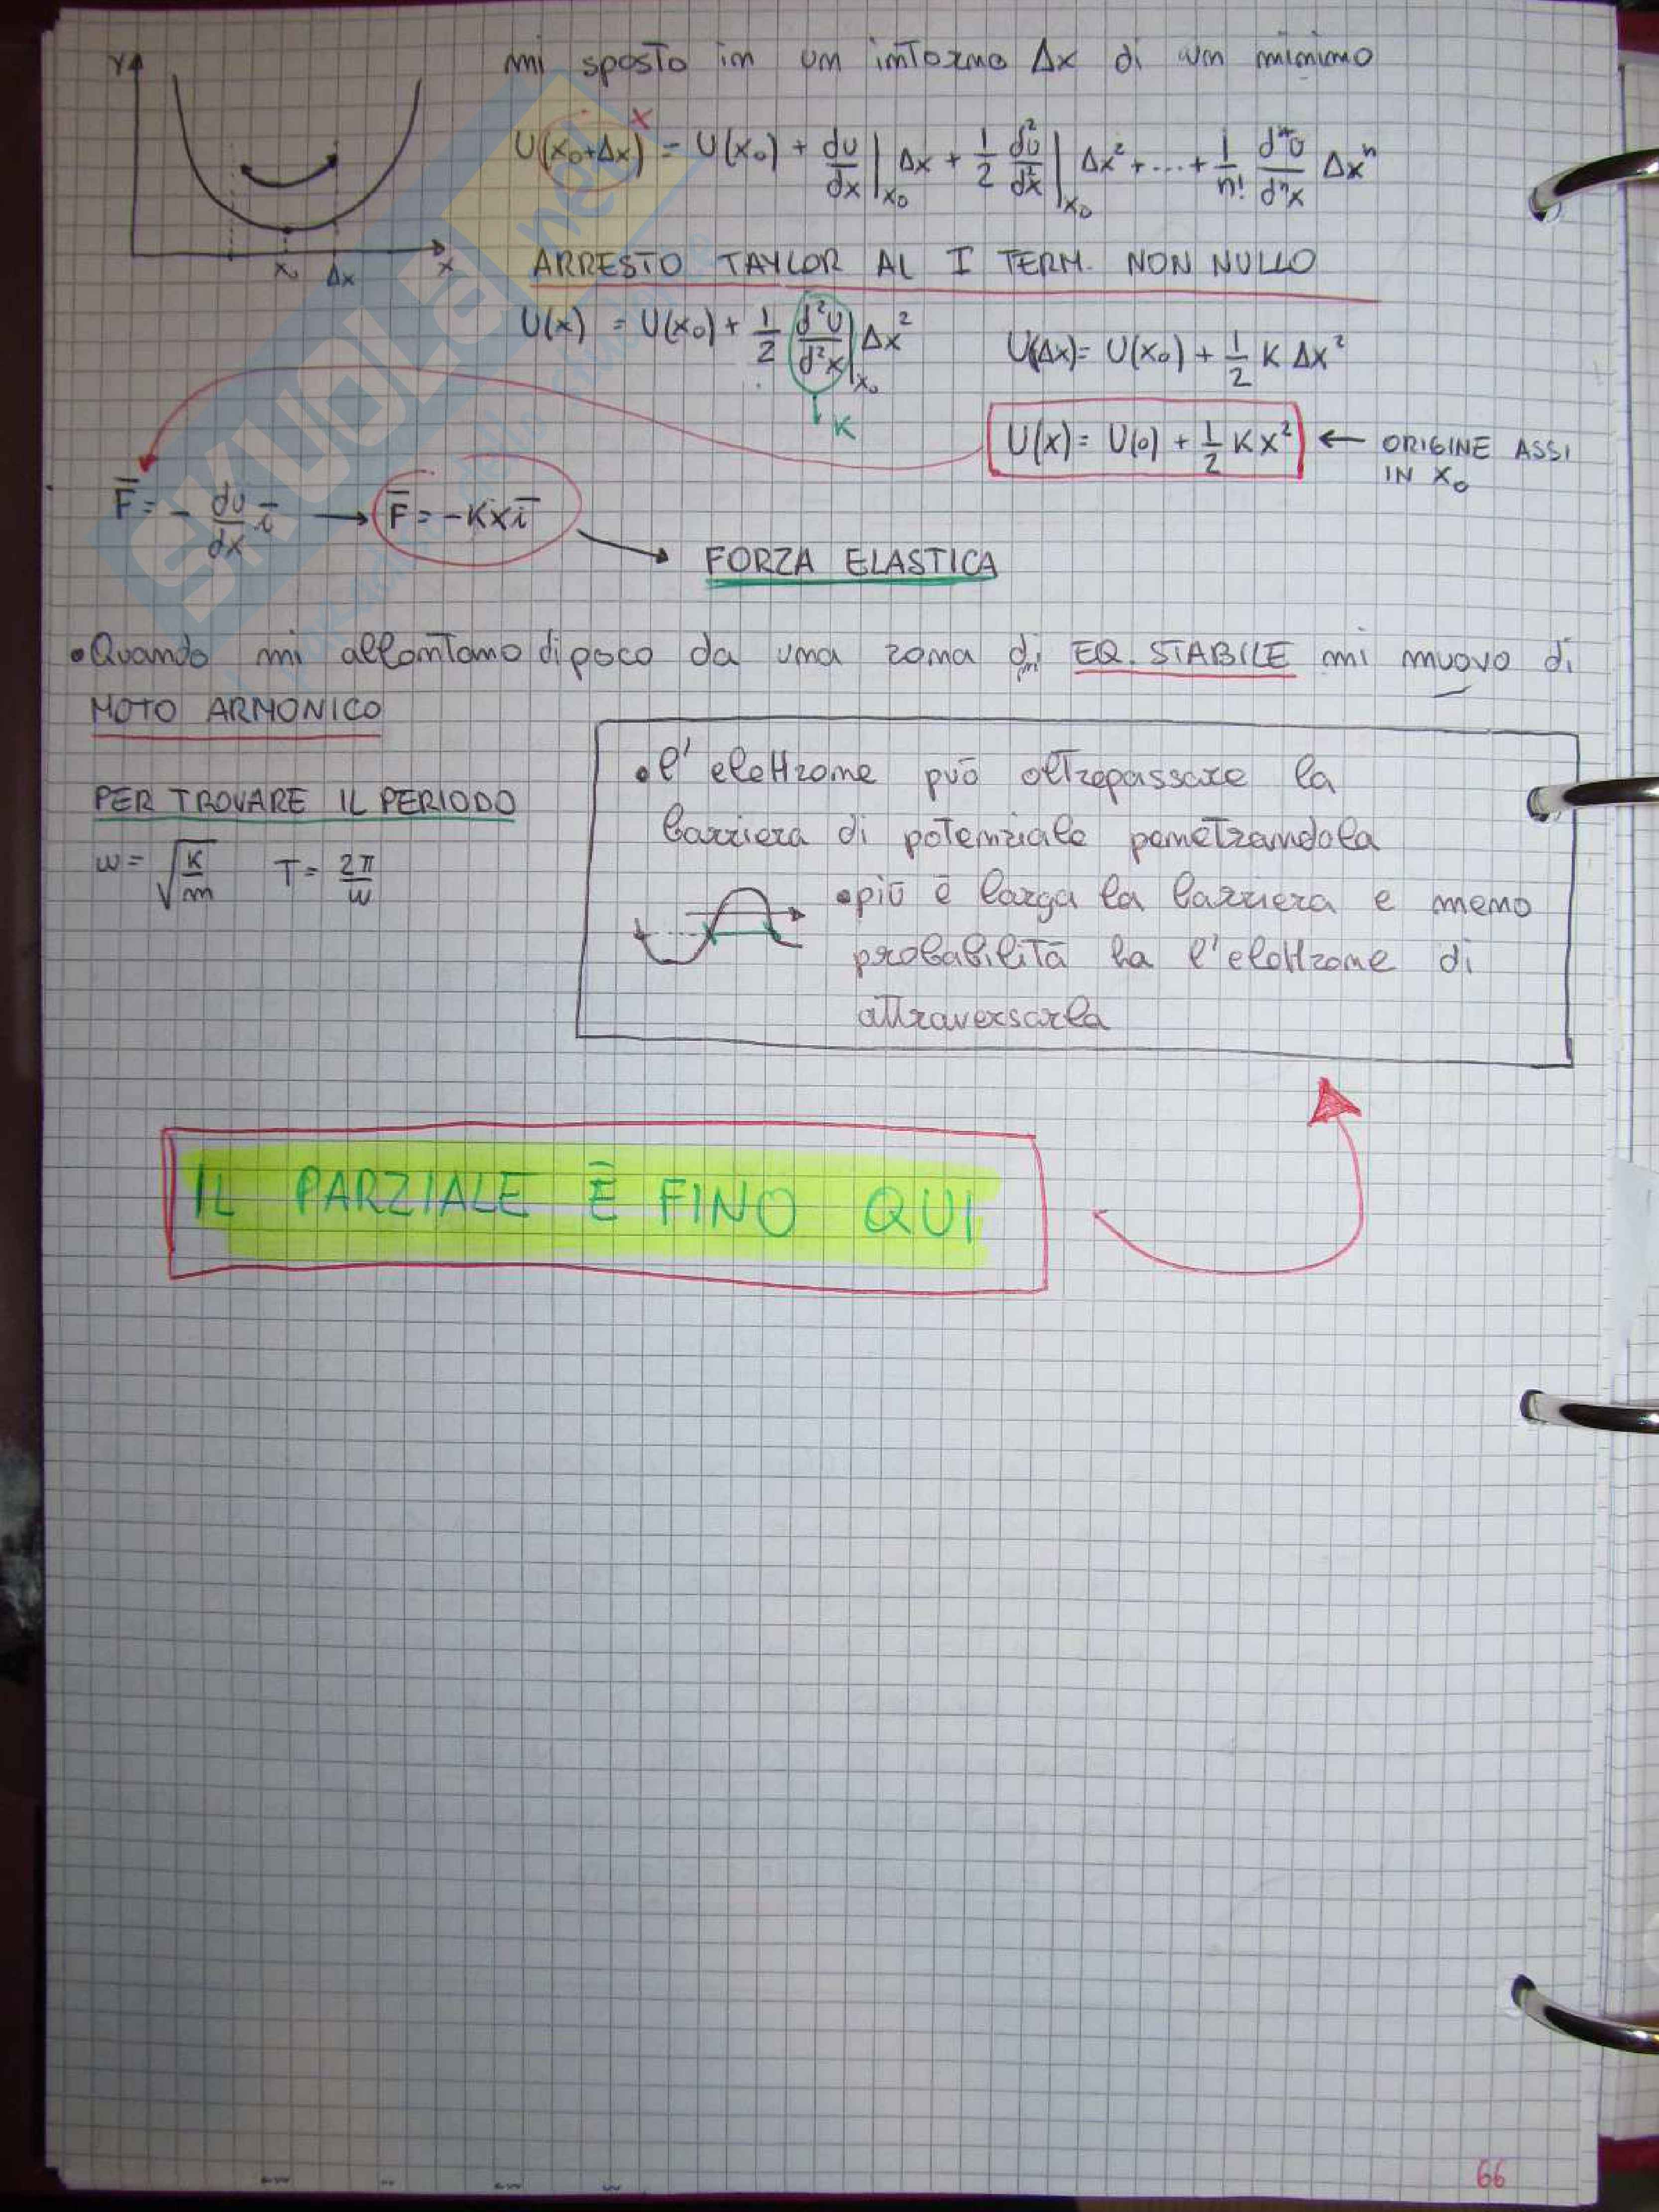 mi sposto in un intorno Δx di un minimo
Y
x₀ Δx x
x
U(x₀+Δx) = U(x₀) + du/dx |x₀ Δx + 1/2 d²u/d²x |x₀ Δx² + ... + 1/n! dⁿu/dⁿx Δxⁿ
ARRESTO TAYLOR AL I TERM. NON NULLO
U(x) = U(x₀) + 1/2 d²U/d²x |x₀ Δx²
U(Δx) = U(x₀) + 1/2 K Δx²
K
U(x) = U(0) + 1/2 K x² ← ORIGINE ASSI
IN x₀
F̅ = - du/dx i̅ → F̅ = -Kx i̅
FORZA ELASTICA
• Quando mi allontano di poco da una zona di EQ. STABILE mi muovo di
MOTO ARMONICO
PER TROVARE IL PERIODO
ω = √K/m T = 2π/ω
• l'elettrone può oltrepassare la
barriera di potenziale penetrandola
• più è larga la barriera e meno
probabilità ha l'elettrone di
attraversarla
IL PARZIALE È FINO QUI
66
SKUOLA.net